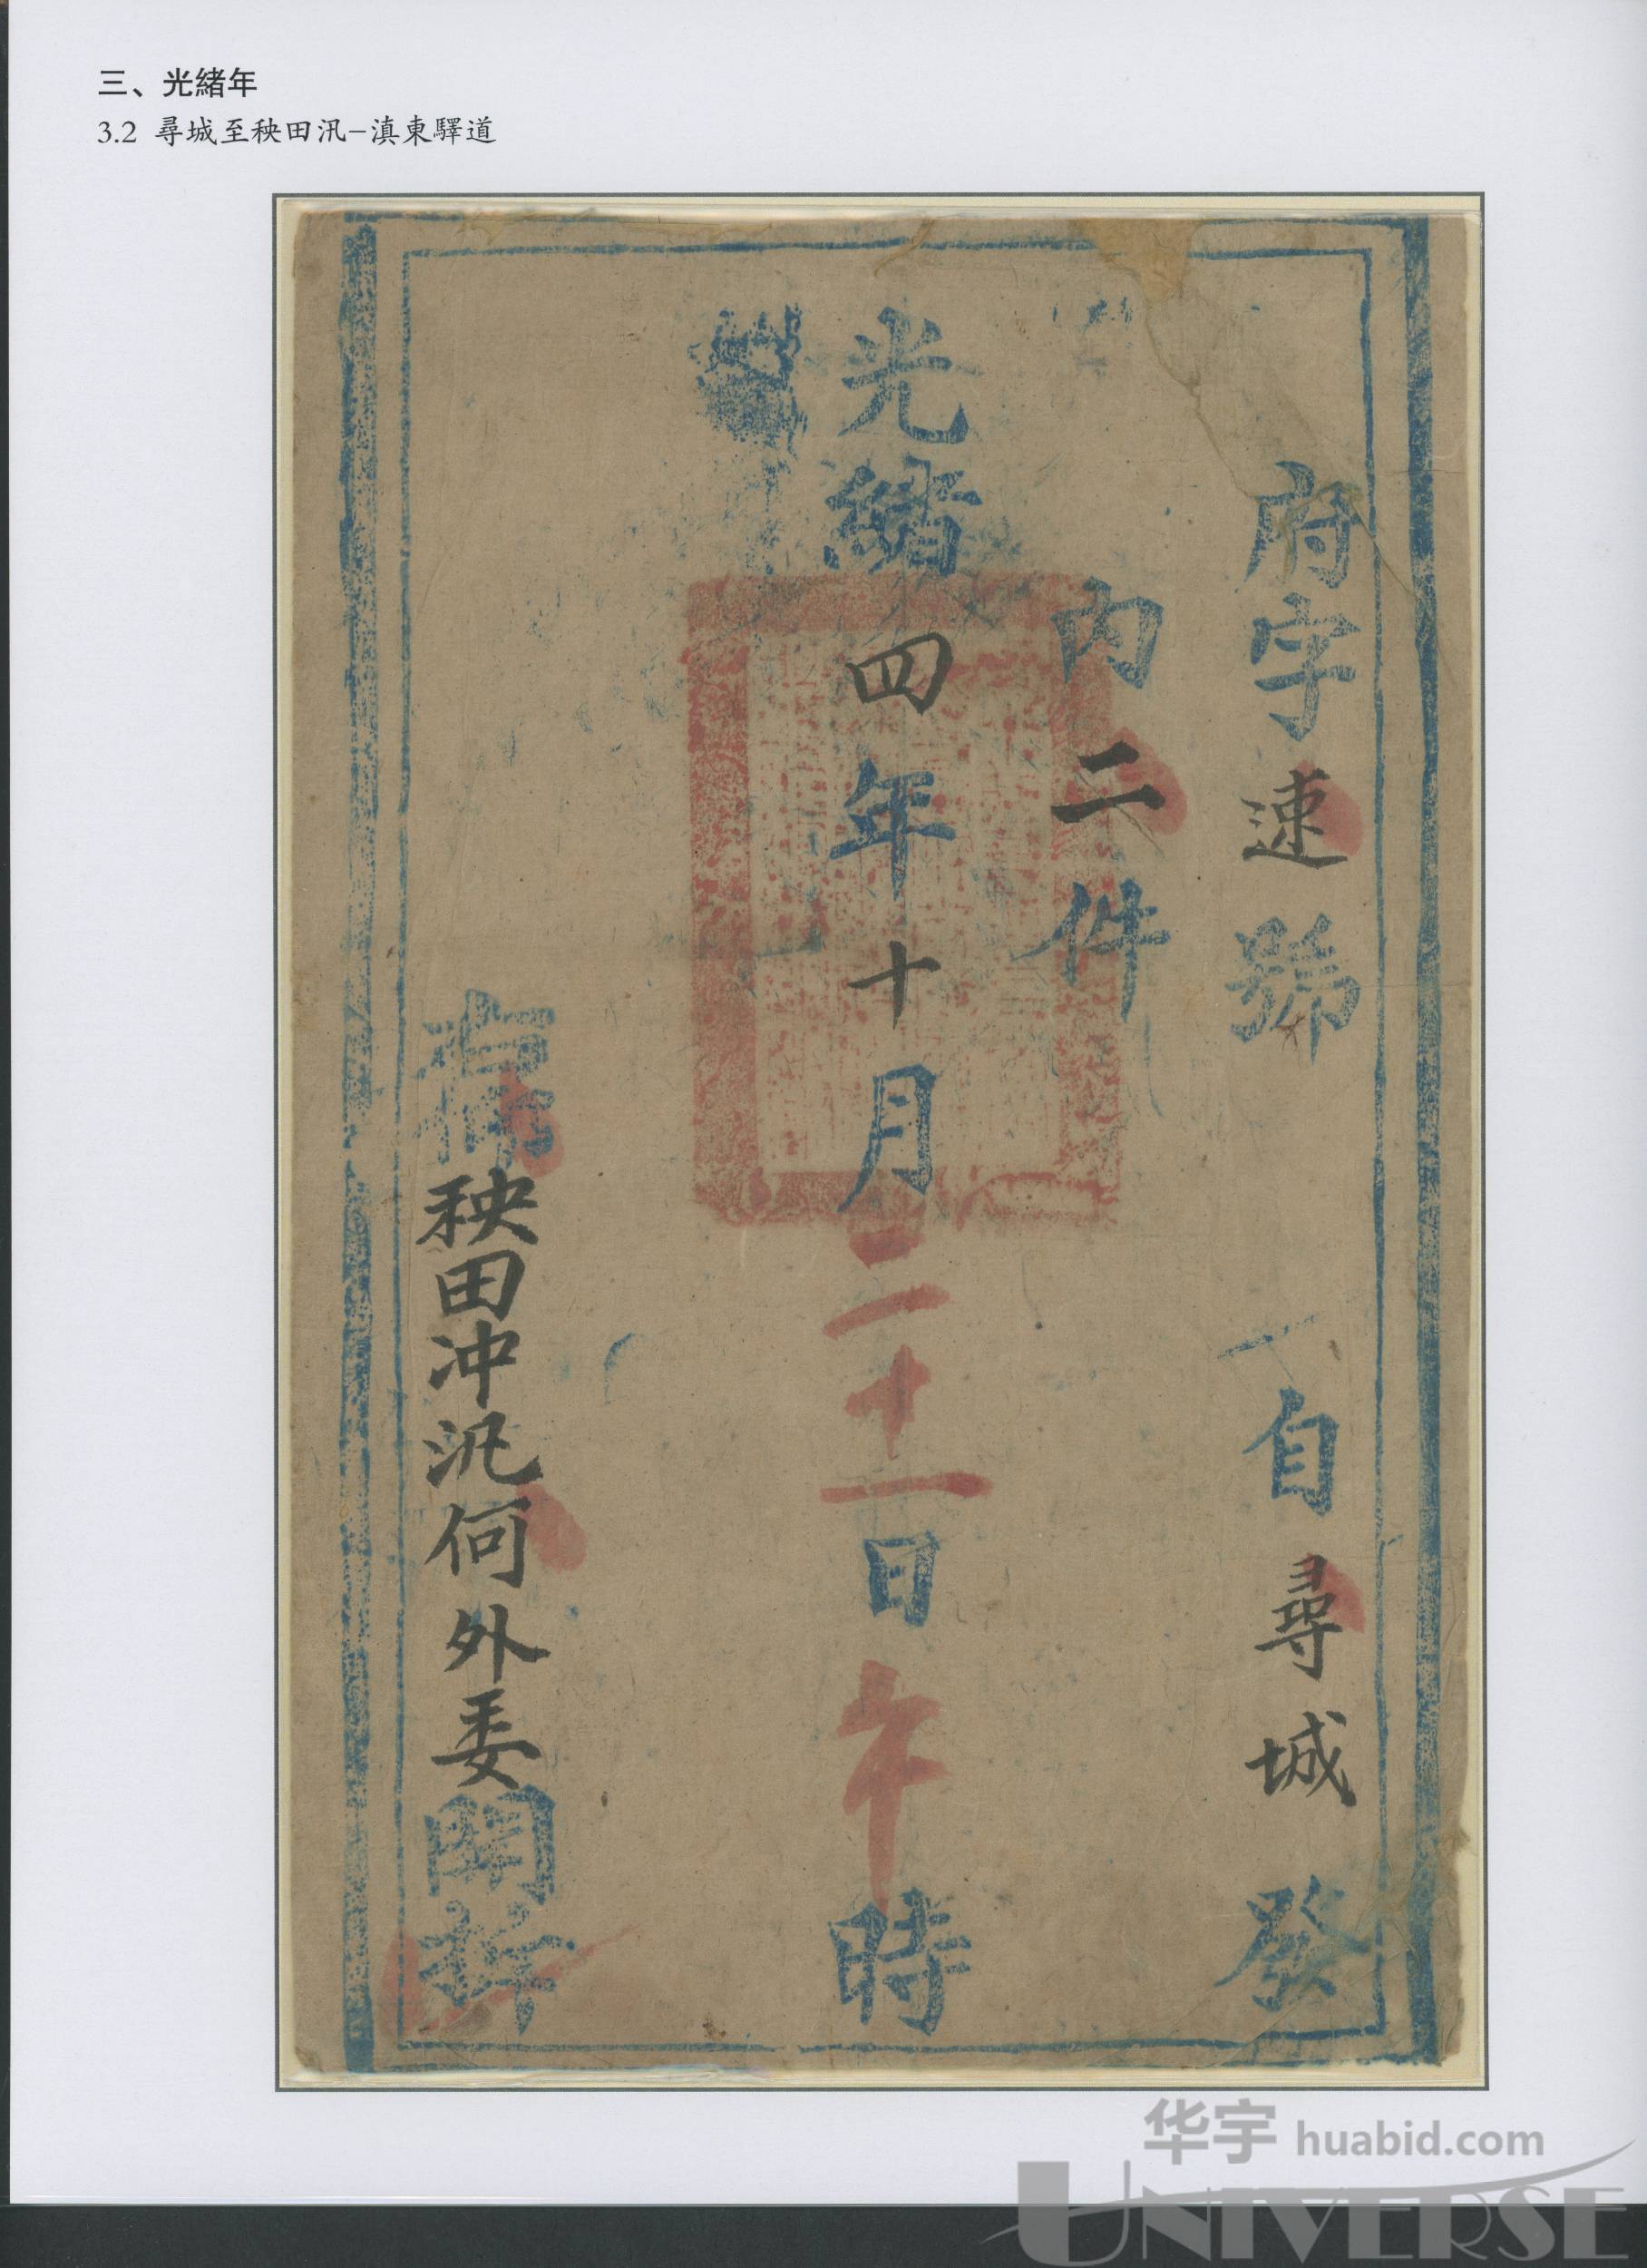 三、光緒年
3.2 尋城至秧田汛-滇東驛道
府字速號 自尋城發
內二件
光緒四年十月二十一日 時
右 秧田冲汛何外委開拆
华宇 huabid.com
UNIVERSE